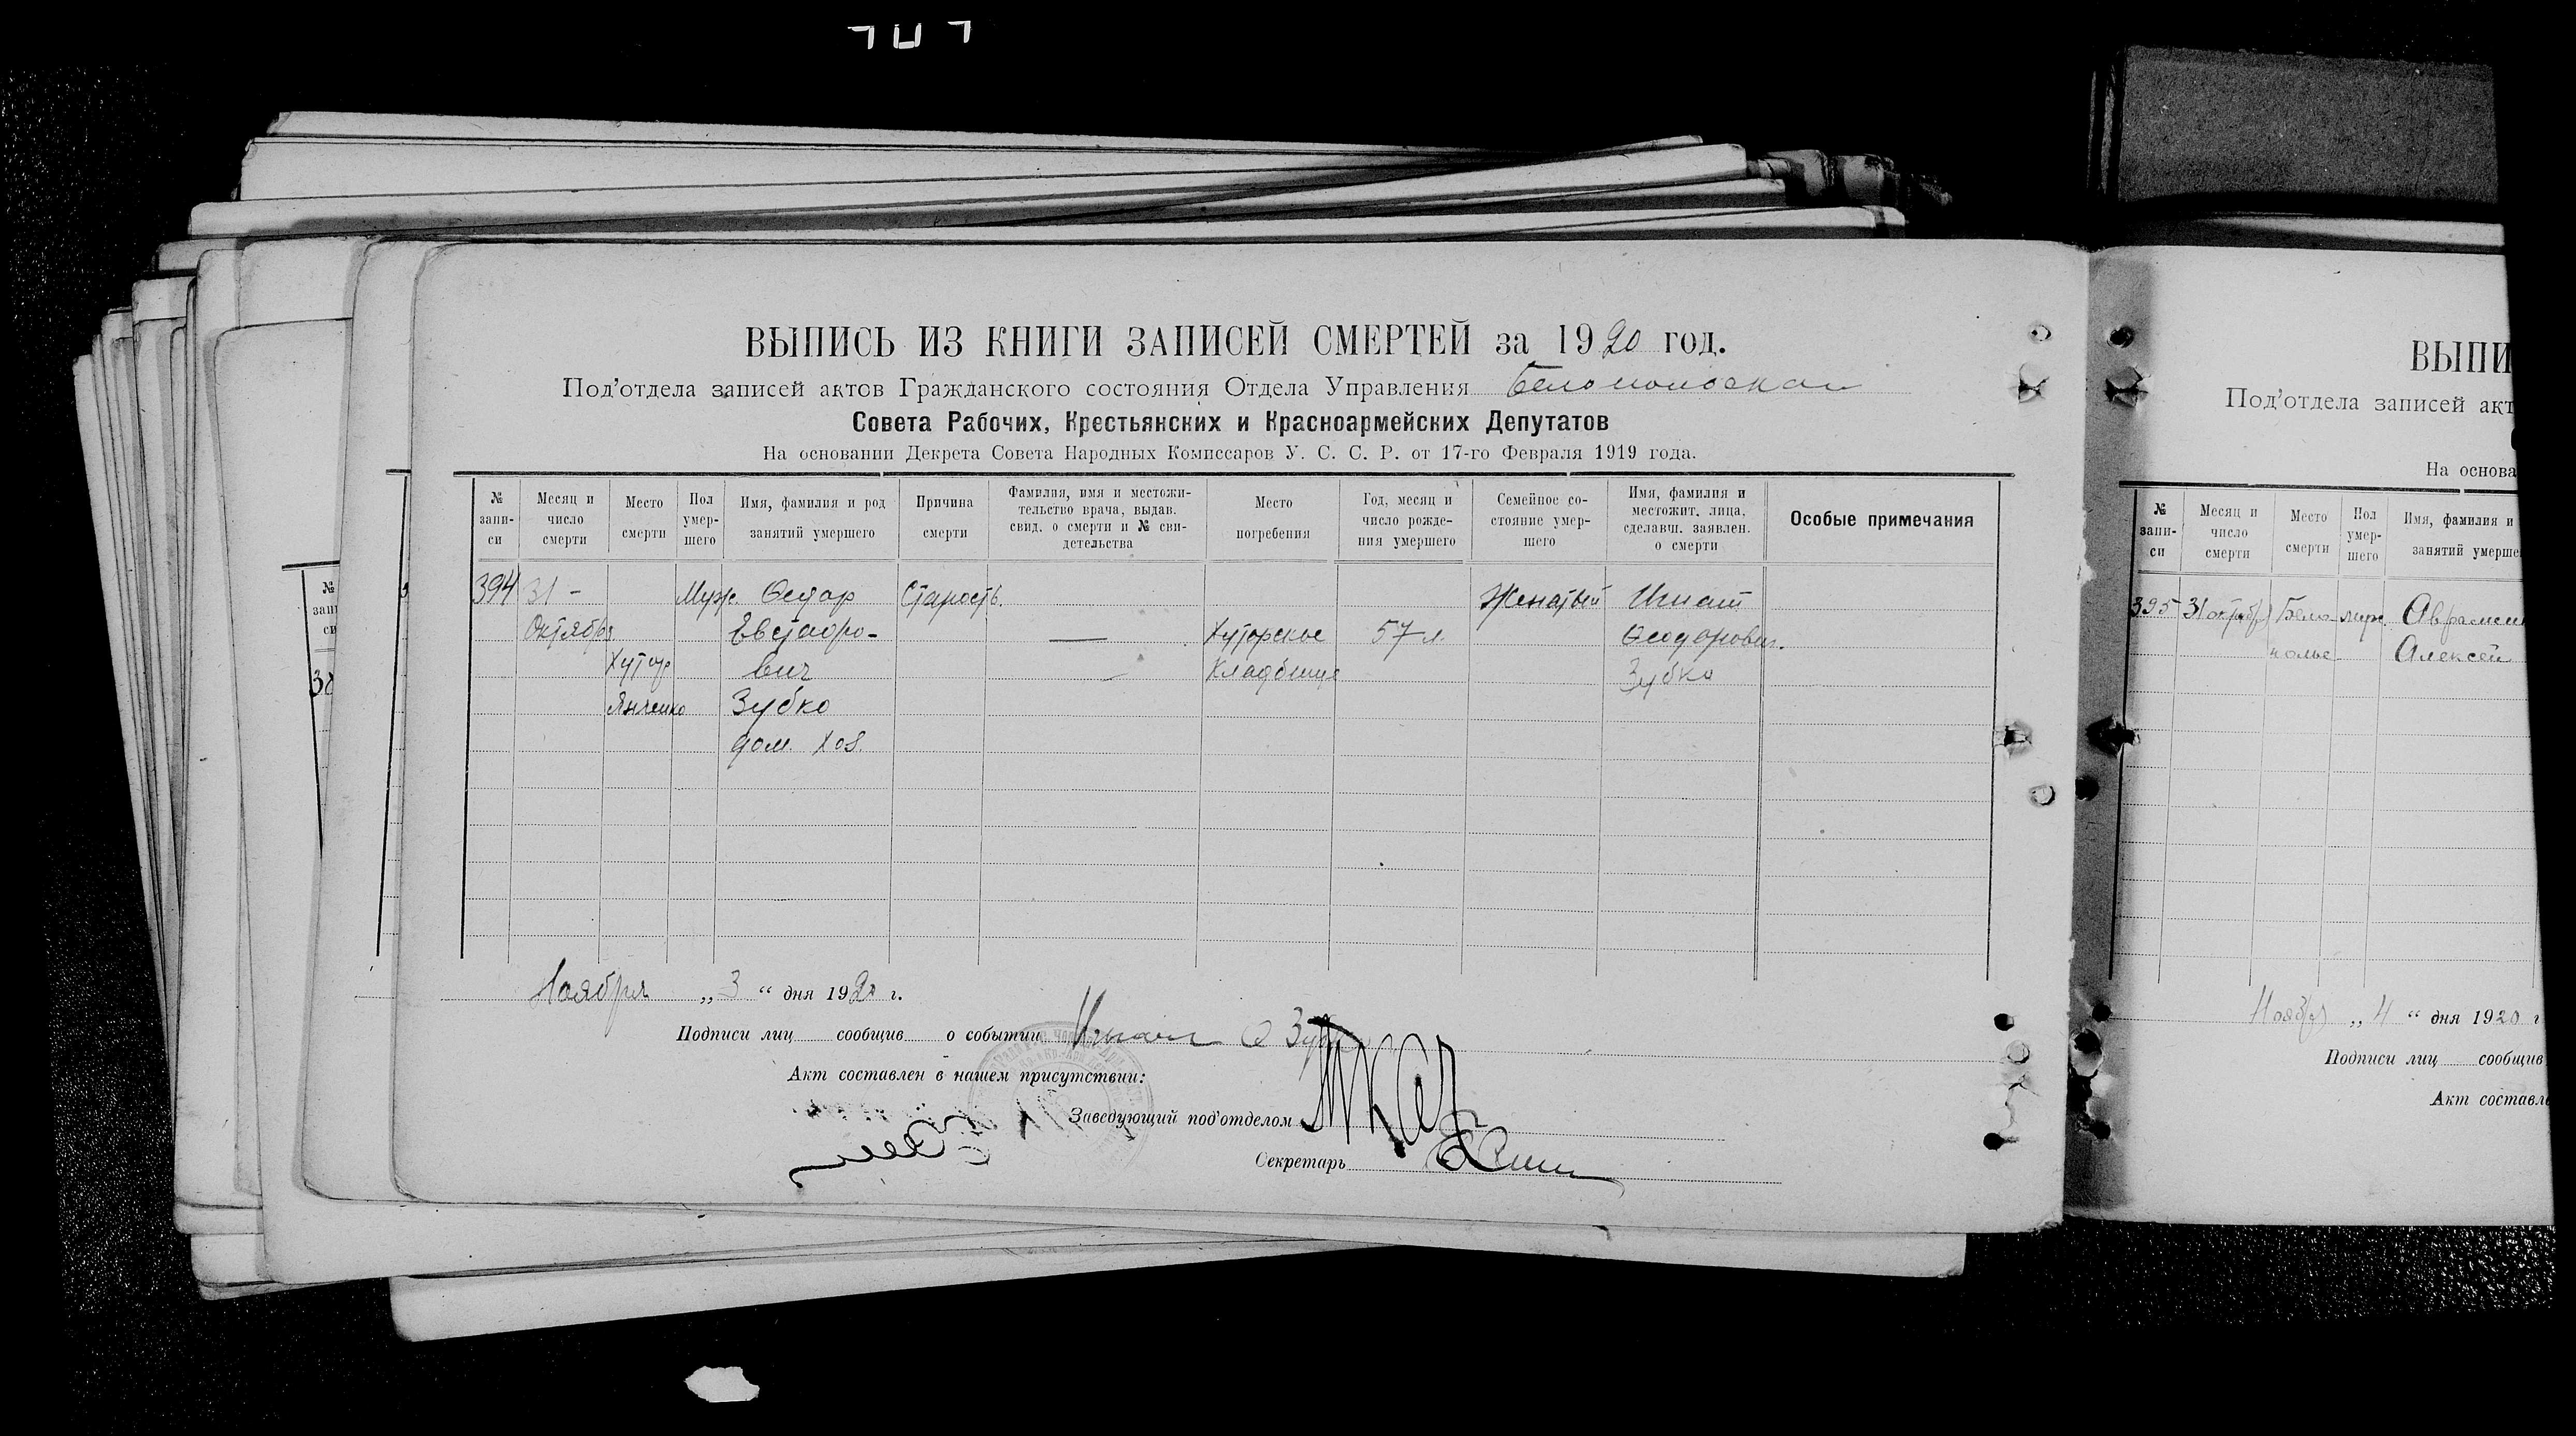 ВЫПИСЬ ИЗ КНИГИ ЗАПИСЕЙ СМЕРТЕЙ за 1920 год.
Под'отдела записей актов Гражданского состояния Отдела Управления
Совета Рабочих, Крестьянских и Красноармейских Депутатов
На основании Декрета Совета Народных Комиссаров У. С. С. Р. от 17-го Февраля 1919 года.
№ запи- си
Месяц и число смерти
Место смерти
Пол умер- шего
Имя, фамилия и род занятий умершего
Причина смерти
Фамилия, имя и местожи- тельство врача, выдав. свид. о смерти и № сви- детельства
Место погребения
Год, месяц и число рожде- ния умершего
Семейное со- стояние умер- шего
Имя, фамилия и местожит. лица, сделавш. заявлен. о смерти
Особые примечания
394 31 - Муж. Федор Старость. Женатый Игнат
Октября Евстафро- — Хуторское 57 л. Феодорович.
Хутор вич — Кладбище Зубко
Янченко Зубко
дом. хоз.
Ноября „ 3 “ дня 1920 г.
Подписи лиц сообщив о событии Игнат Ф Зубко
Акт составлен в нашем присутствии:
Заведующий под'отделом
Секретарь
ВЫПИ
Под'отдела записей акт
На основа
№ запи- си
Месяц и число смерти
Место смерти
Пол умер- шего
Имя, фамилия и занятий умерше
395 31 октяб. Бело- муж Аврамен
полье Алексей
Нояб. „ 4 “ дня 1920 г
Подписи лиц сообщив
Акт составле